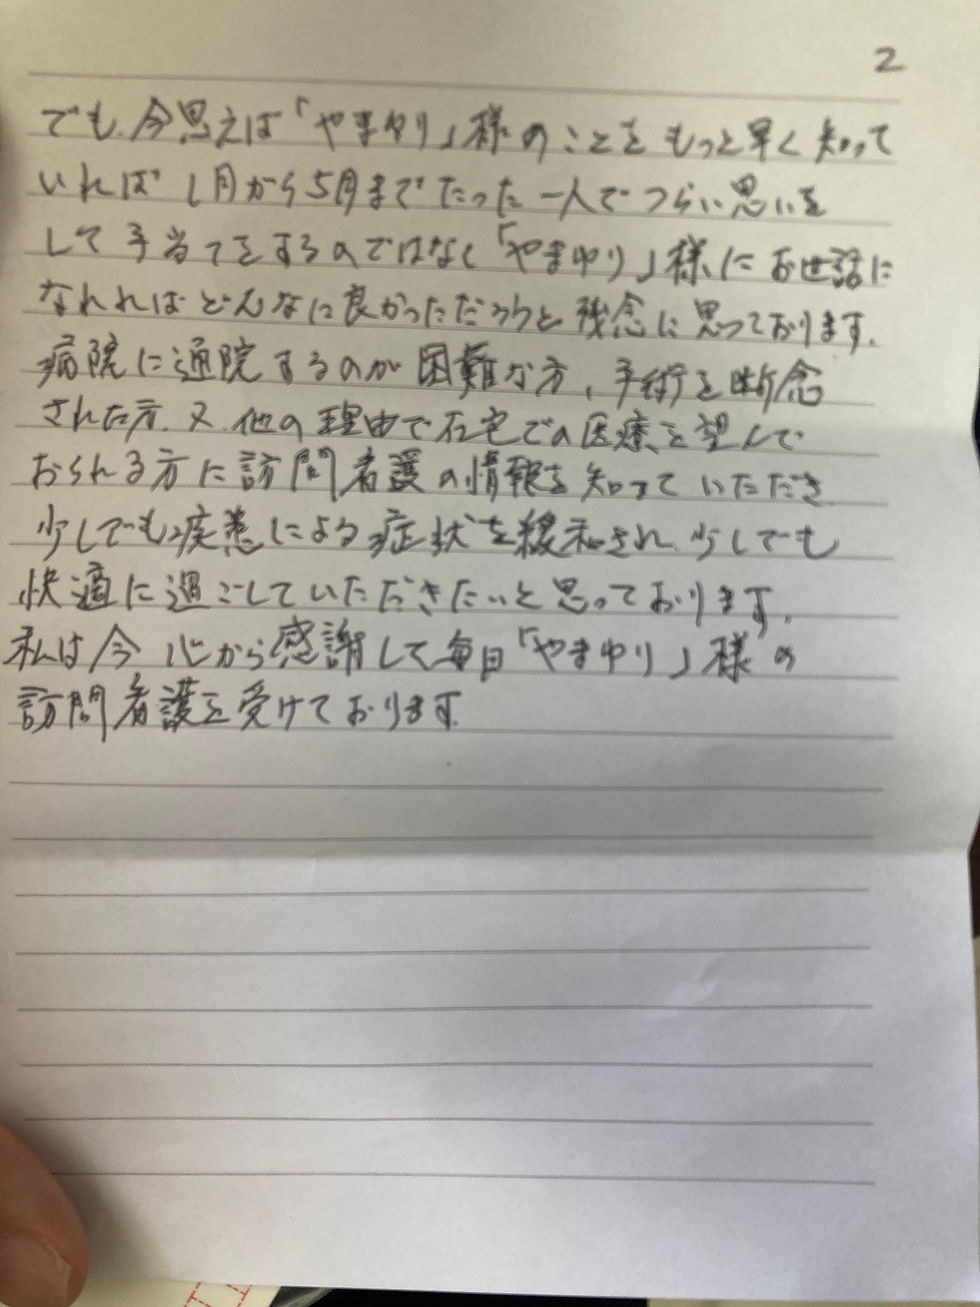 2
でも、今思えば「やまゆり」様のことをもっと早く知って
いれば 1月から5月まで たった一人で つらい思いを
して手当てをするのではなく「やまゆり」様にお世話に
なれればどんなに良かっただろうと残念に思っております。
病院に通院するのが困難な方、手術を断念
された方、又、他の理由で在宅での医療を望んで
おられる方に訪問看護の情報を知っていただき
少しでも疾患による症状を緩和され、少しでも
快適に過ごしていただきたいと思っております。
私は今 心から感謝して毎日「やまゆり」様の
訪問看護を受けております。